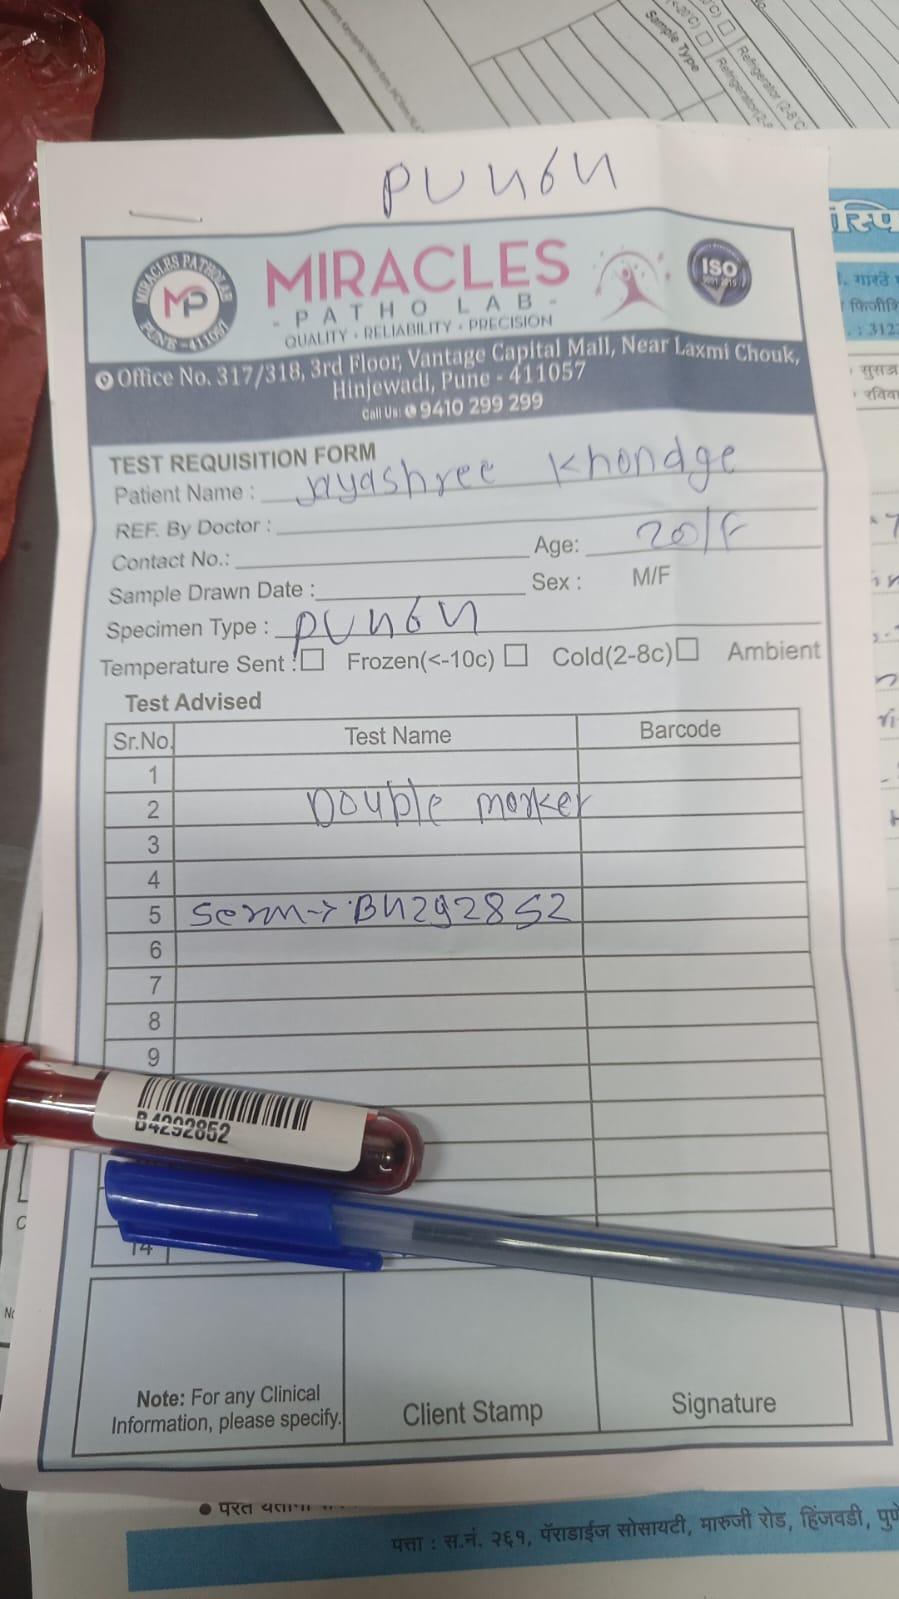 PUN6N
MIRACLES
- PATHO LAB -
QUALITY • RELIABILITY • PRECISION
MIRACLES PATHOLAB
MP
PUNE - 411057
ISO
Office No. 317/318, 3rd Floor, Vantage Capital Mall, Near Laxmi Chouk,
Hinjewadi, Pune - 411057
Call Us: 9410 299 299
TEST REQUISITION FORM
Patient Name : Jayashree Khondge
REF. By Doctor :
Contact No.: Age: 20/F
Sample Drawn Date : Sex : M/F
Specimen Type : PUN6N
Temperature Sent : Frozen(<-10c) Cold(2-8c) Ambient
Test Advised
Sr.No. Test Name Barcode
1
2 Double marker
3
4
5 Serm→ B4292852
6
7
8
9
B4292852
14
Note: For any Clinical
Information, please specify.
Client Stamp
Signature
Sample Type
Refrigerator (2-8°C)
स्पि
गारठे
फिजीशि
: 312
सुसज्ज
रविवा
• परत
पत्ता : स.नं. २६१, पॅराडाईज सोसायटी, मारुजी रोड, हिंजवडी, पुणे